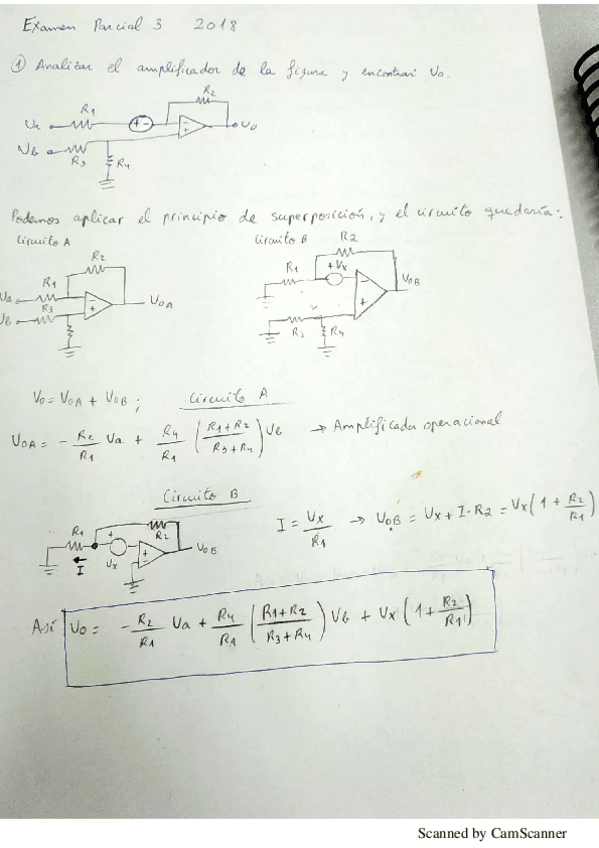 Examen Parcial 3 2018
① Analizar el amplificador de la figura y encontrar Vo.
R2
R1
Va + - - + Vo
Vb
R3 R4
Podemos aplicar el principio de superposición, y el circuito quedaría:
Circuito A Circuito B R2
R2 R1 + Vx
R1 VOB
Va R3 - + VOA
Vb R3 R4
Vo = VOA + VOB ; Circuito A
VOA = - R2/R1 Va + R4/R1 (R1+R2/R3+R4) Vb → Amplificada operacional
Circuito B
R1 + R2 VOB I = Vx/R1 → VOB = Vx + I·R2 = Vx(1 + R2/R1)
I Vx
Así Vo = - R2/R1 Va + R4/R1 (R1+R2/R3+R4) Vb + Vx (1 + R2/R1)
Scanned by CamScanner